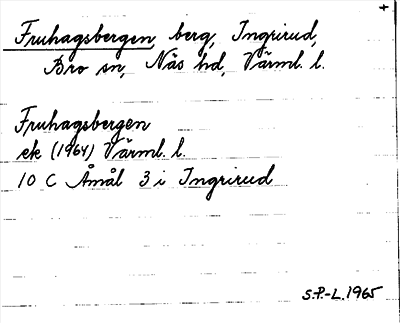 +
Fruhagsbergen, berg, Ingrirud,
Bro sn, Näs hd, Värml. l.
Fruhagsbergen
ek (1964) Värml. l.
10 C Åmål 3 i Ingrirud
S.P.-L. 1965